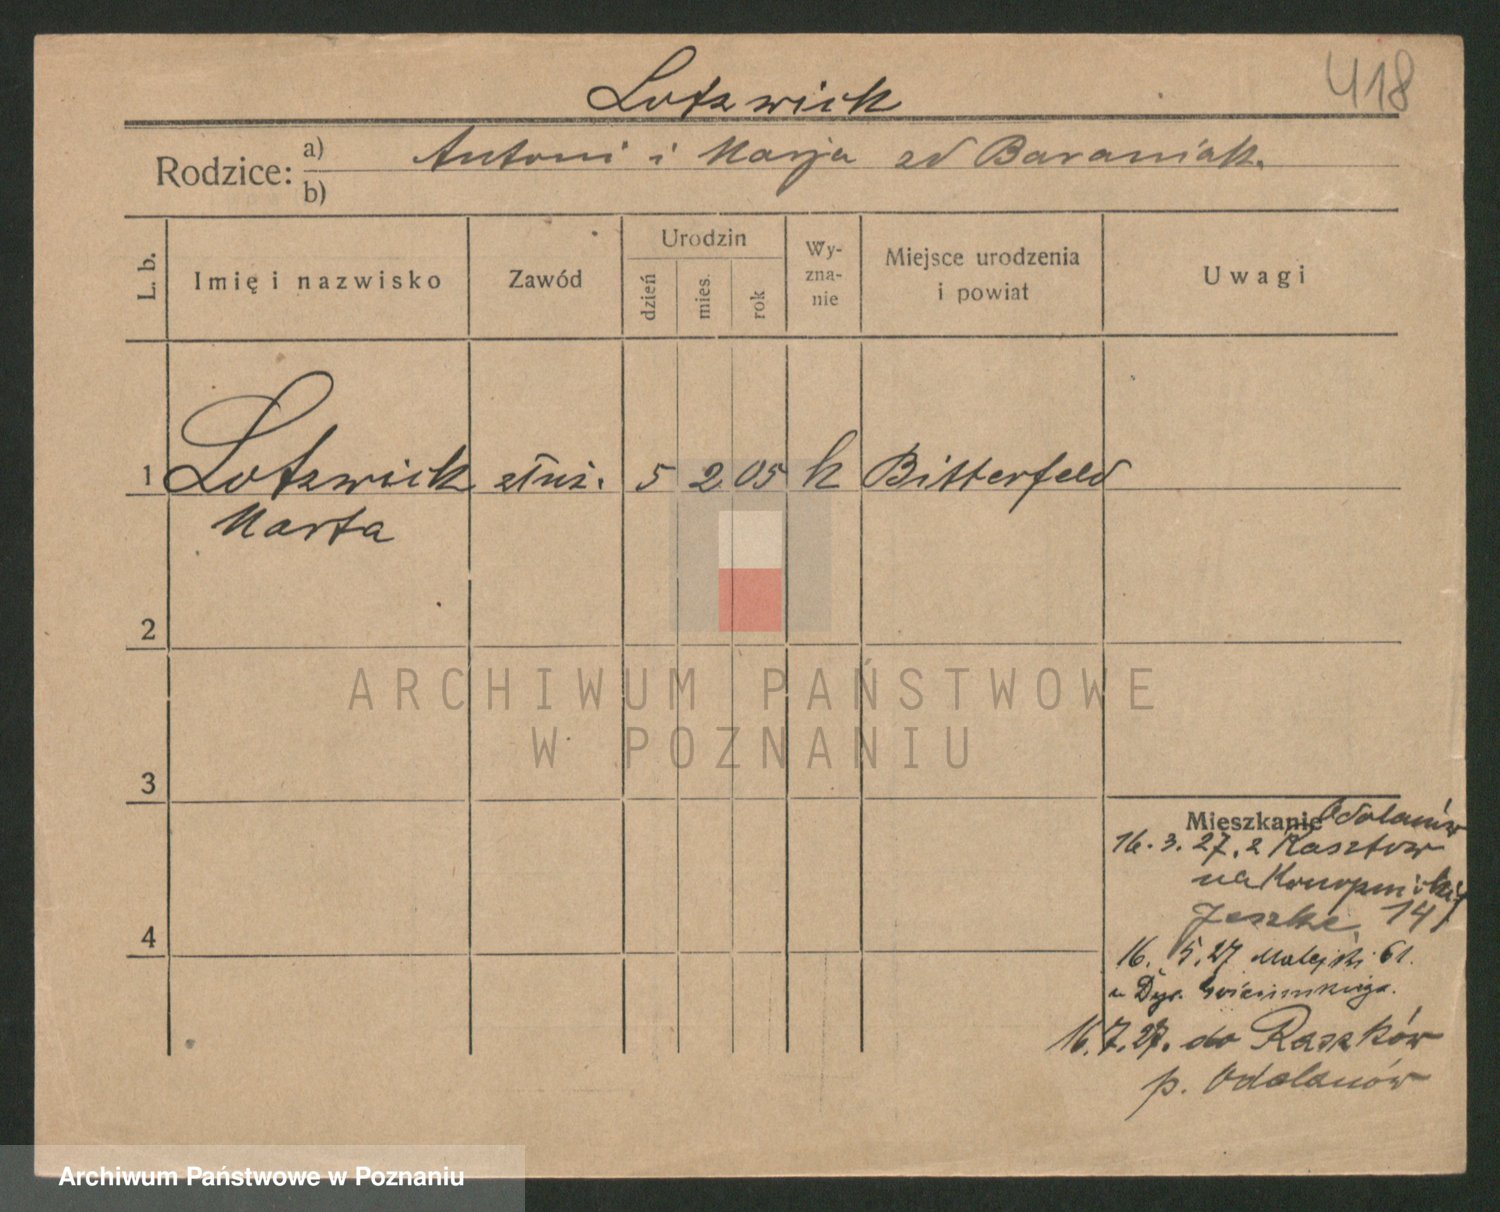 418
Lotzwick
Rodzice: a) Antoni i Marja zd Baraniak.
b)
L. b.
Imię i nazwisko
Zawód
Urodzin
dzień
mies.
rok
Wy-
zna-
nie
Miejsce urodzenia
i powiat
Uwagi
1 Lotzwick służ. 5 2 05 k Bitterfeld
Marta
2
3
4
ARCHIWUM PAŃSTWOWE
W POZNANIU
Mieszkanie Odolanów
16. 3. 27. z
na
Jeszke 14
16. 5. 27 Matejki 61.
u Dyr.
16. 7. 27. do Raszków
p. Odolanów
Archiwum Państwowe w Poznaniu